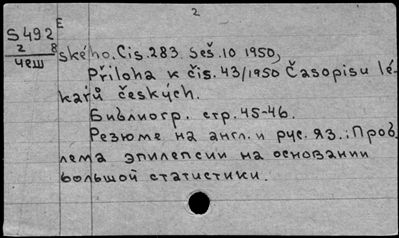 2
S 492 E
2 8
чеш
ského. Cis. 283. Seš. 10 1950,
Příloha k čís. 43/1950 Časopisu lé-
kařů českých.
Библиогр. стр. 45-46.
Резюме на англ. и рус. яз.: Проб
лема эпилепсии на основании
большой статистики.